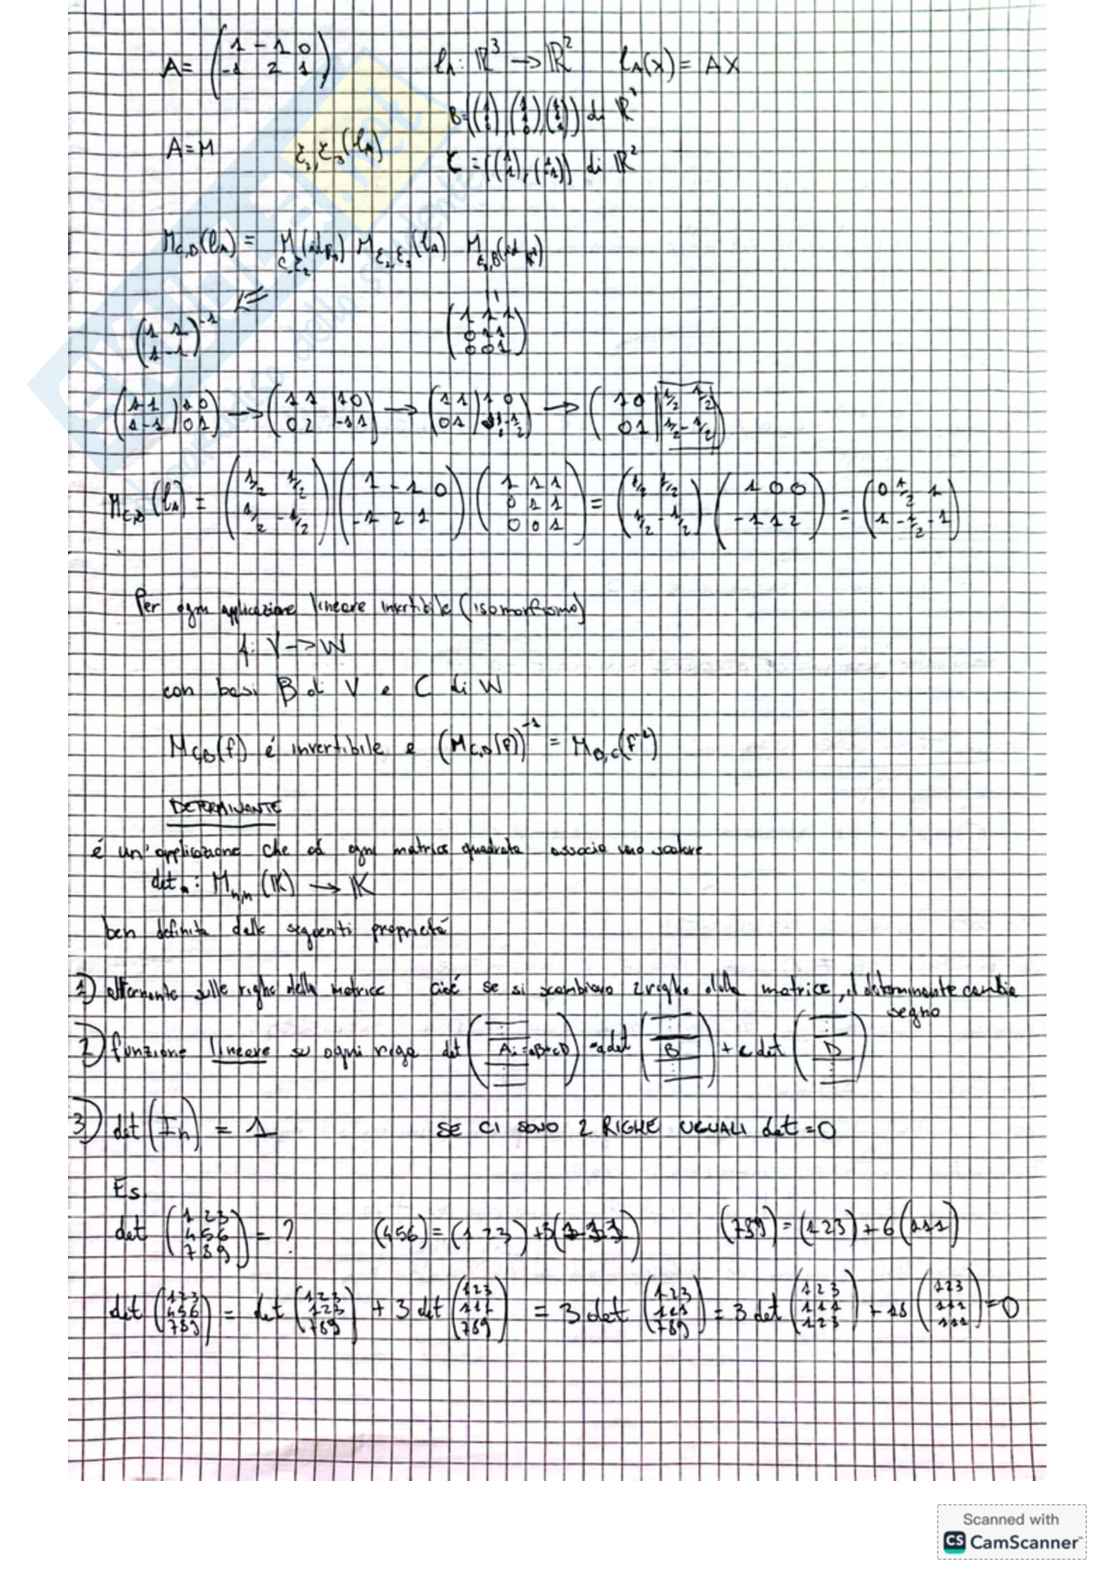 A = ( 1 -1 0 / -1 2 1 )   l_A : ℝ³ → ℝ²   l_A(x) = AX
B = ((1 0 0), (1 1 0), (1 1 1)) di ℝ³
A = M ℰ₂,ℰ₃ (l_A)   C = ((1 1), (1 -1)) di ℝ²
M_C,B(l_A) = M_C,ℰ₂(id_ℝ²) M_ℰ₂,ℰ₃(l_A) M_ℰ₃,B(id_ℝ³)
( 1 1 / 1 -1 )⁻¹   ( 1 1 1 / 0 1 1 / 0 0 1 )
( 1 1 | 1 0 / 1 -1 | 0 1 ) → ( 1 1 | 1 0 / 0 2 | -1 1 ) → ( 1 1 | 1 0 / 0 1 | -½ ) → ( 1 0 | ½ ½ / 0 1 | ½ -½ )
M_C,B(l_A) = ( ½ ½ / ½ -½ ) ( 1 -1 0 / -1 2 1 ) ( 1 1 1 / 0 1 1 / 0 0 1 ) = ( ½ ½ / ½ -½ ) · ( 1 0 0 / -1 1 2 ) = ( 0 ½ 1 / 1 -½ -1 )
Per ogni applicazione lineare invertibile (isomorfismo)
f: V → W
con basi B di V e C di W
M_C,B(f) é invertibile e (M_C,B(f))⁻¹ = M_B,C(f⁻¹)
DETERMINANTE
é un' applicazione che ad ogni matrice quadrata associa uno scalare
det_n : M_n,n (𝕂) → 𝕂
ben definita dalle seguenti proprietá
1) alternante sulle righe della matrice cioé se si scambiano 2 righe della matrice, il determinante cambia
segno
2) funzione lineare su ogni riga det ( Ai = aB+cD ) = a det ( B ) + c det ( D )
3) det (In) = 1   SE CI SONO 2 RIGHE UGUALI det = 0
Es.
det ( 1 2 3 / 4 5 6 / 7 8 9 ) = ?   (4 5 6) = (1 2 3) + 3(1 1 1)   (7 8 9) = (1 2 3) + 6 (1 1 1)
det ( 1 2 3 / 4 5 6 / 7 8 9 ) = det ( 1 2 3 / 1 2 3 / 7 8 9 ) + 3 det ( 1 2 3 / 1 1 1 / 7 8 9 ) = 3 det ( 1 2 3 / 1 1 1 / 7 8 9 ) = 3 det ( 1 2 3 / 1 1 1 / 1 2 3 ) + 18 ( 1 2 3 / 1 1 1 / 1 1 1 ) = 0
Scanned with
CS CamScanner